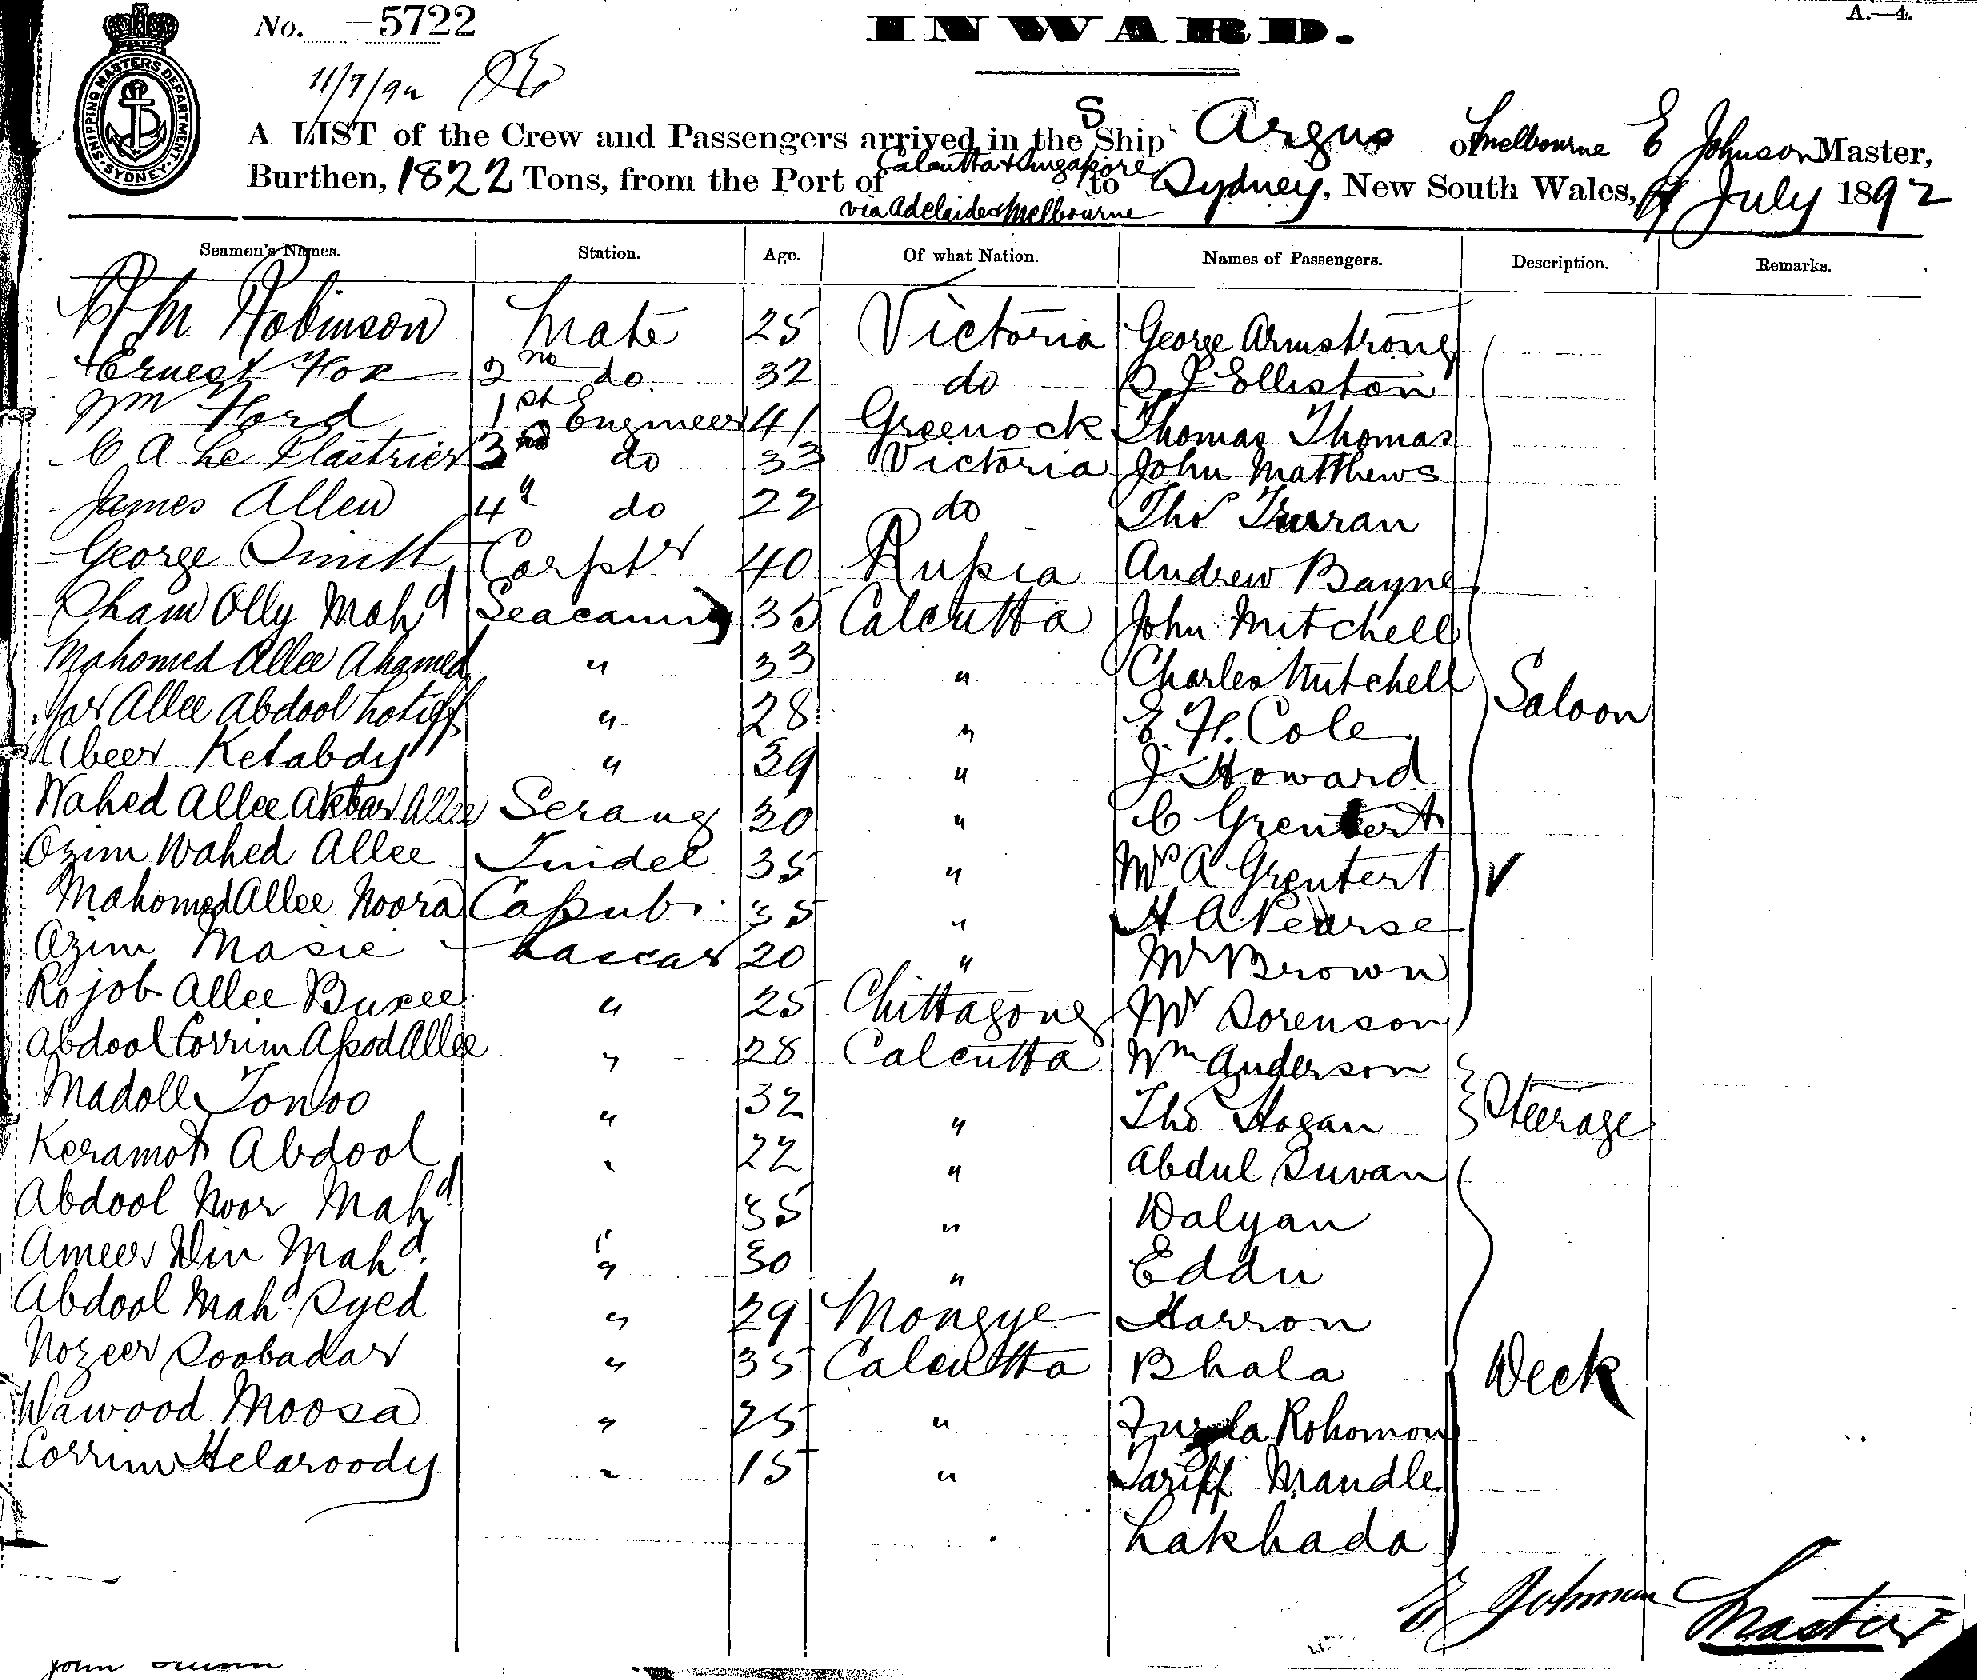 No. -5722
INWARD.
A.—4.
SHIPPING MASTERS DEPARTMENT SYDNEY
11/7/92
A LIST of the Crew and Passengers arrived in the S Ship Argus of Melbourne E Johnson Master,
Burthen, 1822 Tons, from the Port of Calcutta & Singapore via Adelaide & Melbourne to Sydney, New South Wales, July 1892
Seamen's Names. Station. Age. Of what Nation. Names of Passengers. Description. Remarks.
H M Robinson Mate 25 Victoria George Armstrong
Ernest Fox 2nd do. 32 do Elliston
Wm Ford 1st Engineer 41 Greenock Thomas Thomas
C A Le Plastrier 3rd do 33 Victoria John Matthews
James Allen 4" do 22 do Thos Turran
George Smith Carptr 40 Russia Andrew Bayne
Sham Olly Mahd Seacunny 35 Calcutta John Mitchell
Mahomed Allee Ahamed " 33 " Charles Mitchell Saloon
Yar Allee Abdool Lotiff " 28 " E. H. Cole
Abeer Ketabdy " 39 " J Howard
Wahed Allee Akbar Allee Serang 30 " C Grentert
Ozim Wahed Allee Tindel 35 " Mrs A Grentert
Mahomed Allee Noora 35 " H A Pearse
Ozim Masie Lascar 20 " Mr Brown
Rojob Allee Buxee " 25 Chittagong Mr Sorenson
Abdool Corrim Assod Allee " 28 Calcutta Wm Anderson
Madoll Tonoo " 32 " Thos Hogan Steerage
Keramot Abdool " 22 " Abdul Suvan
Abdool Noor Mahd " 35 " Dalyan
Ameer Din Mahd. " 30 " Eddu
Abdool Mahd Syed " 29 Mongye Harron
Nozeer Soobadar " 35 Calcutta Bhala Deck
Dawood Moosa " 25 " Rohomon
Corrim Helaroody " 15 " Tariff Mandle
Lakhada
E Johnson Master